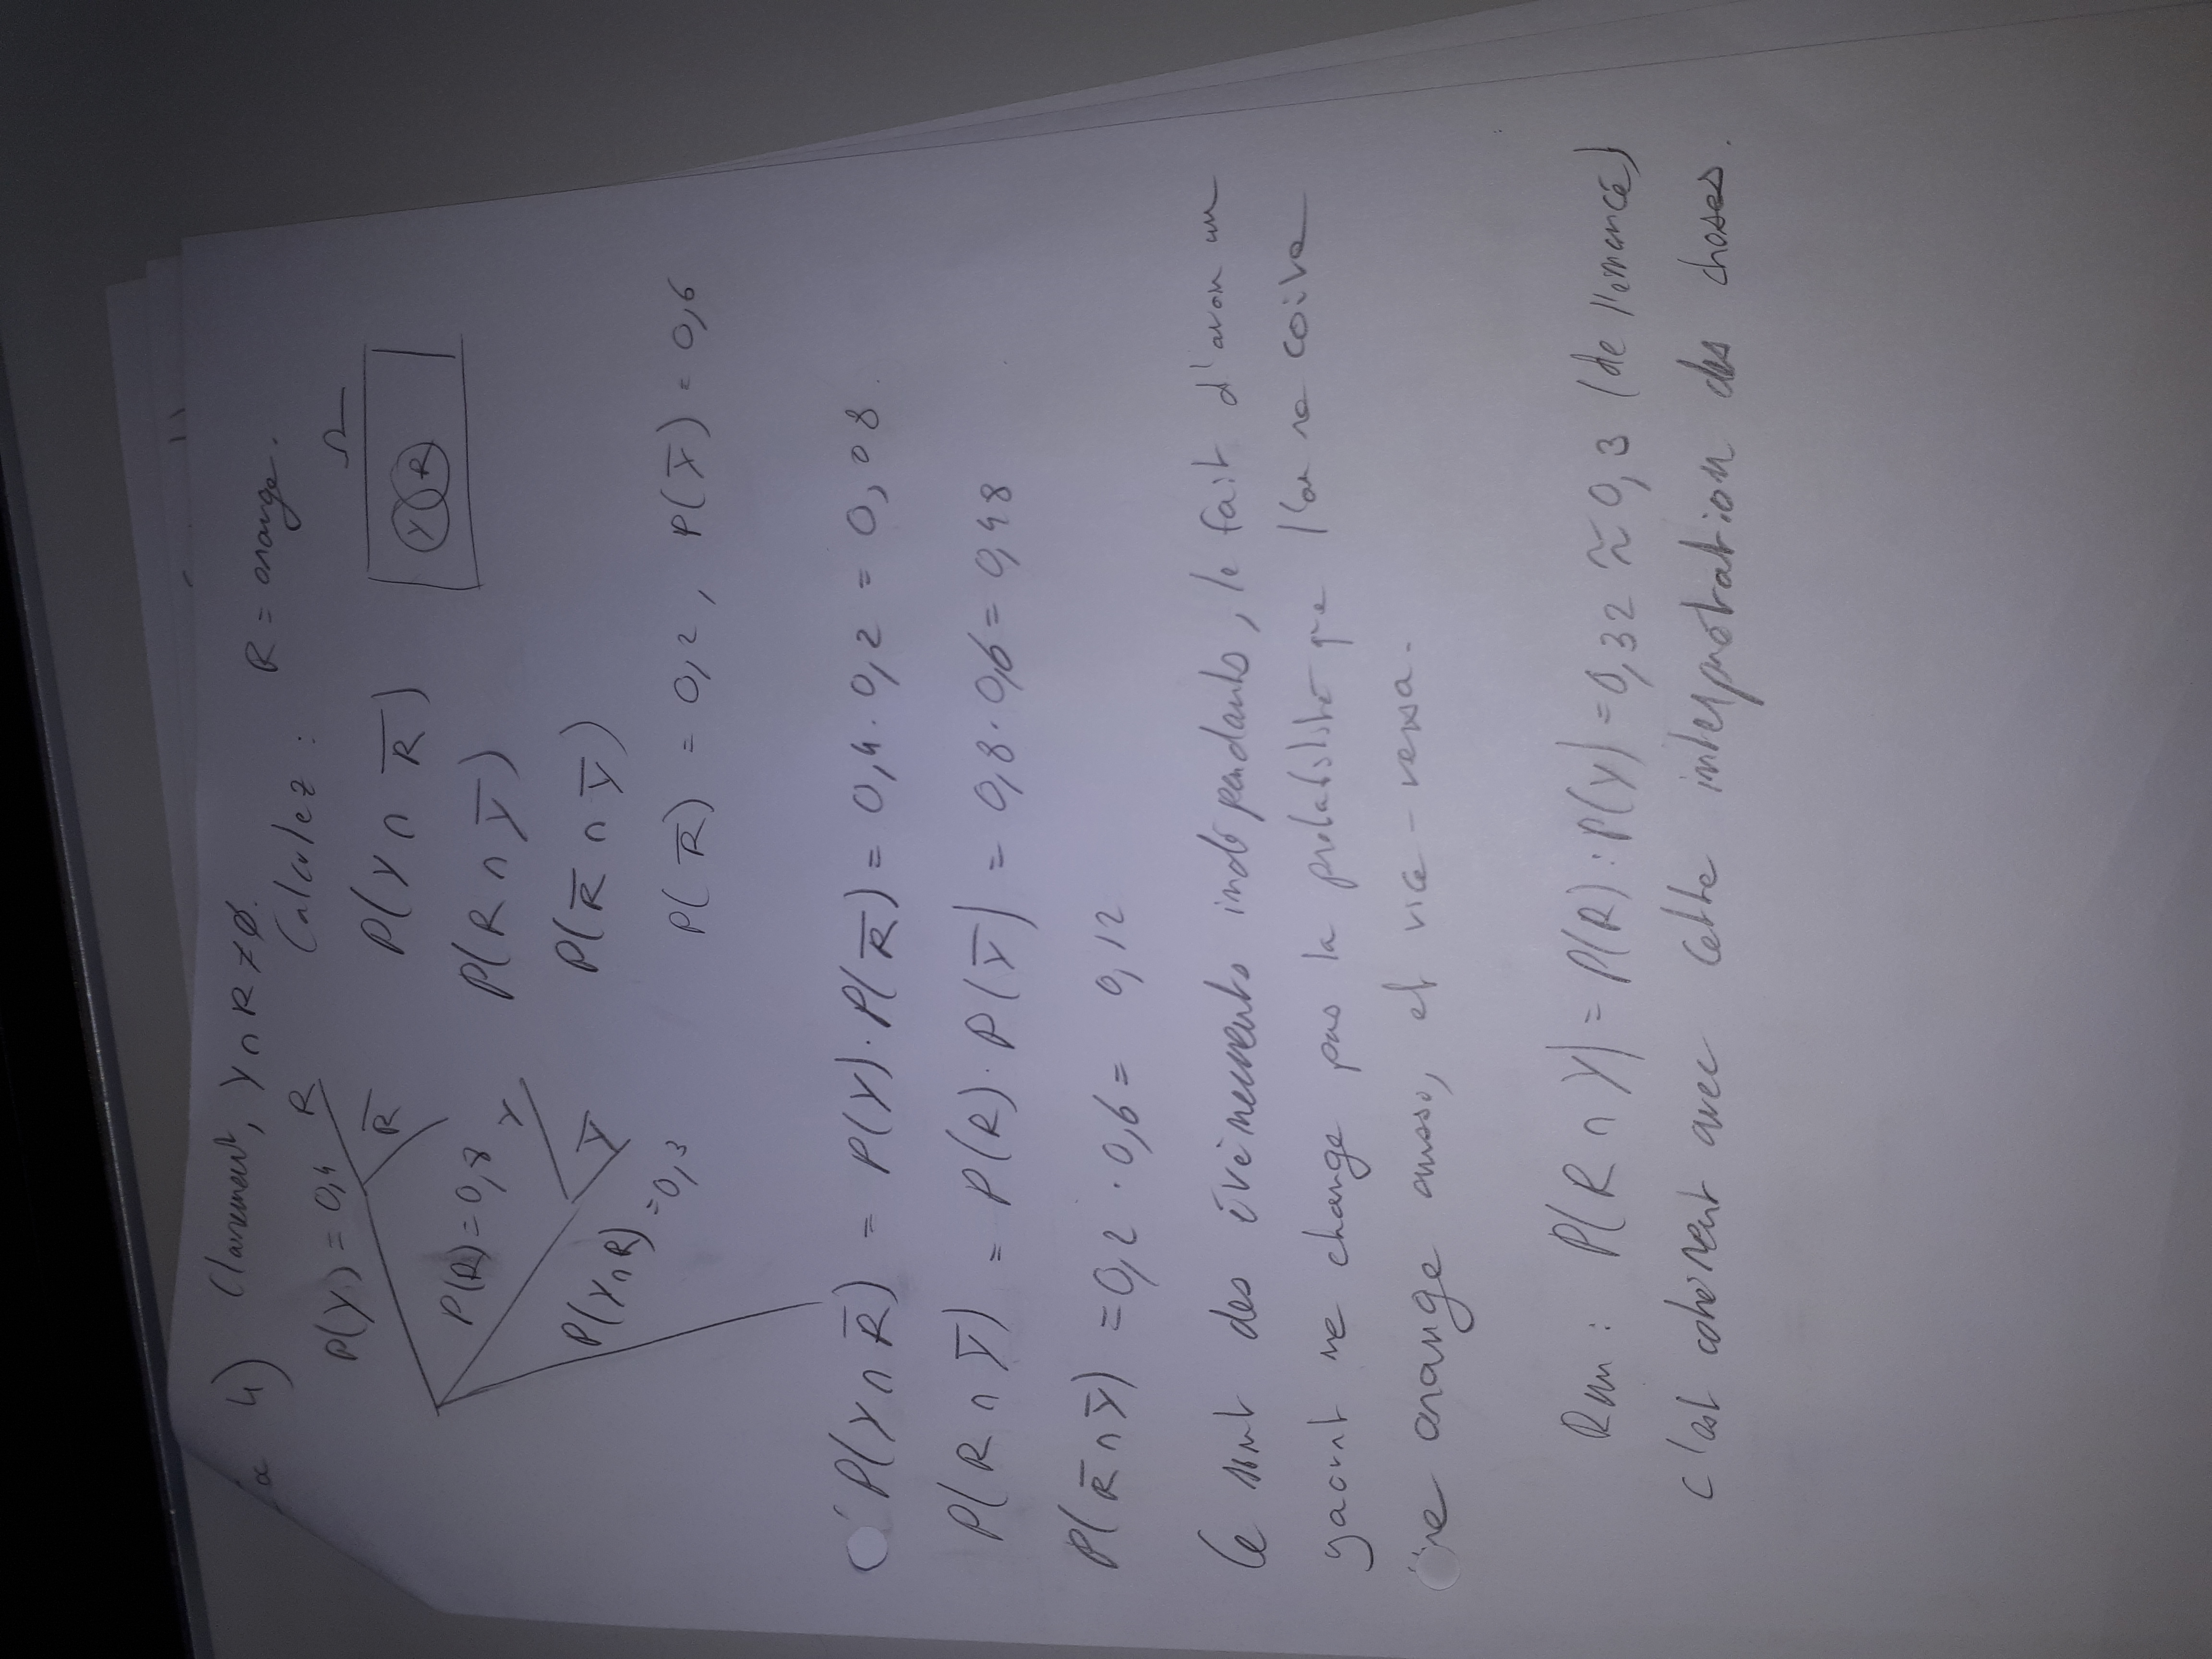 4) Clairement, Y ∩ R ≠ ∅.
R = orange.
P(Y) = 0,4
R
R̅
Calculez :
Ω
P(Y ∩ R̅)
Y R
P(R) = 0,8
Y
Y̅
P(R ∩ Y̅)
P(Y∩R) = 0,3
P(R̅ ∩ Y̅)
P(R̅) = 0,2, P(Y̅) = 0,6
P(Y ∩ R̅) = P(Y) · P(R̅) = 0,4 · 0,2 = 0,08
P(R ∩ Y̅) = P(R) · P(Y̅) = 0,8 · 0,6 = 0,48
P(R̅ ∩ Y̅) = 0,2 · 0,6 = 0,12
Ce sont des évènements indépendants, le fait d'avoir un
yaourt ne change pas la probabilité que l'on re coive
une orange aussi, et vice-versa.
Rem : P(R ∩ Y) = P(R) · P(Y) = 0,32 ≈ 0,3 (de l'énoncé)
c'est cohérent avec cette interprétation des choses.